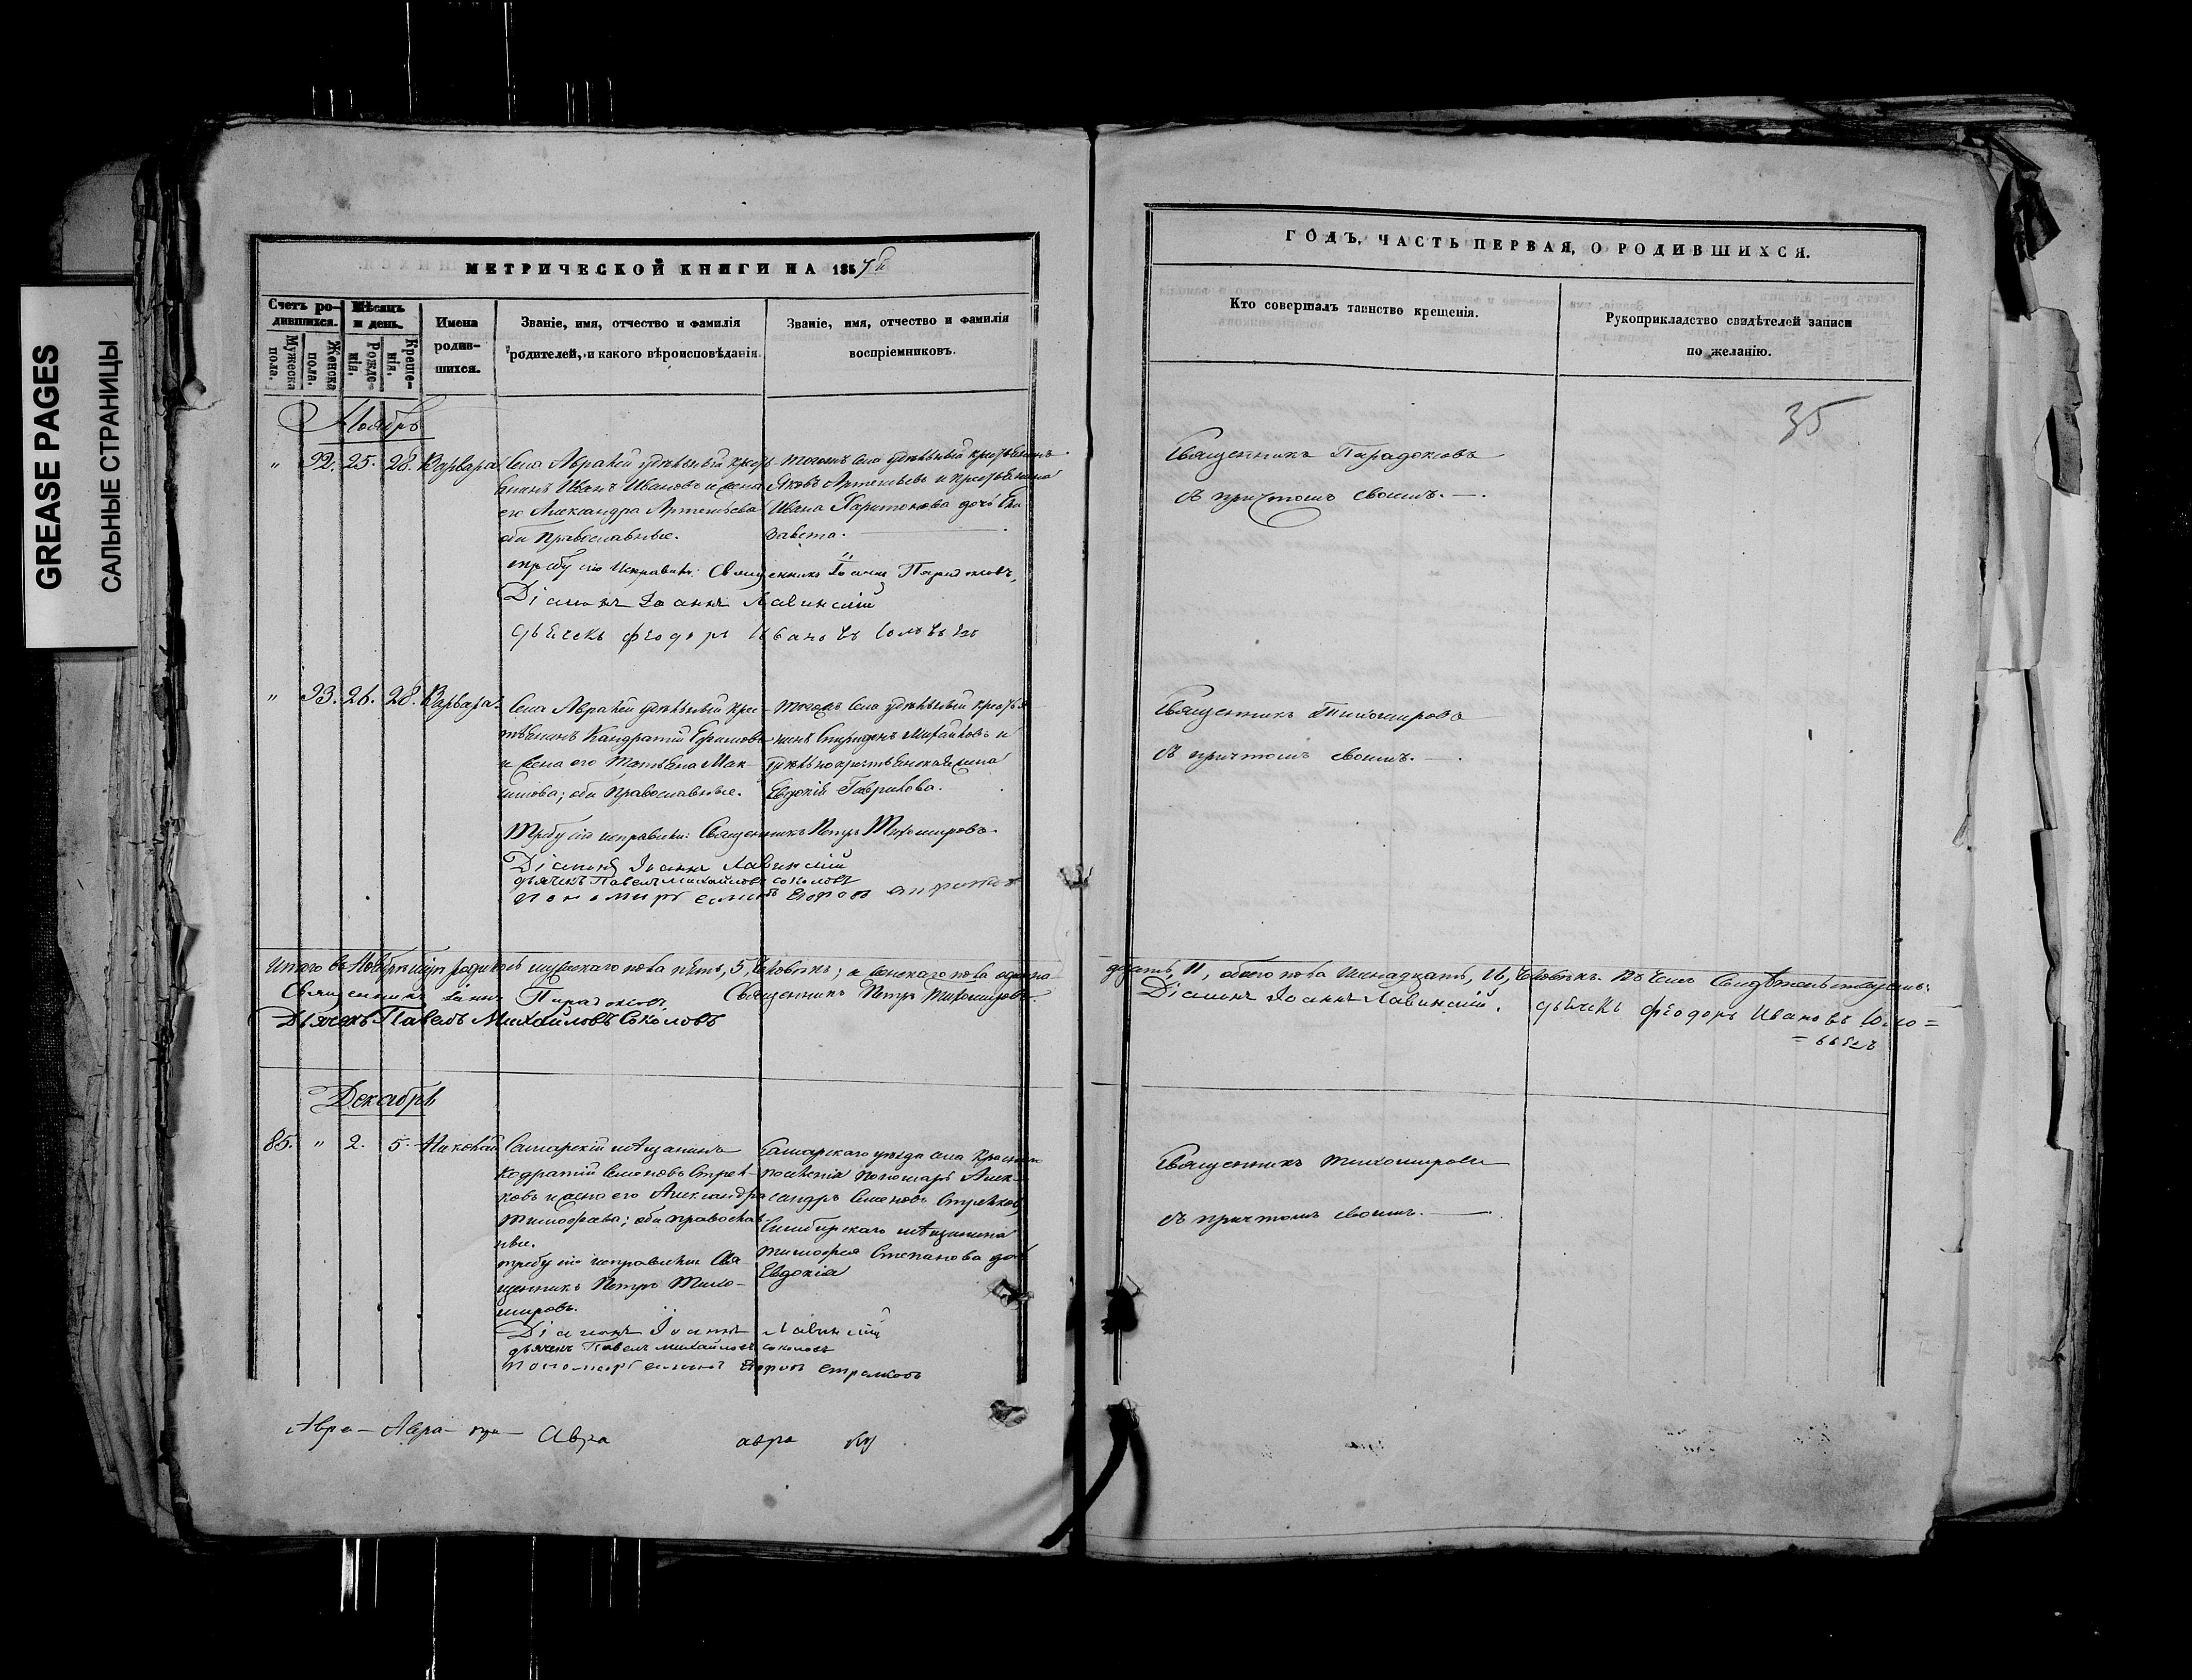 GREASE PAGES
САЛЬНЫЕ СТРАНИЦЫ
МЕТРИЧЕСКОЙ КНИГИ НА 1857й
Счетъ родившихся.
Мѣсяцъ и день.
Мужеска пола.
Женска пола.
Рожденія.
Крещенія.
Имена родившихся.
Званіе, имя, отчество и фамилія
родителей, и какого вѣроисповѣданія.
Званіе, имя, отчество и фамилія
воспріемниковъ.
Ноябрь
" 92. 25. 28. Варвара
Села Авралей удѣльный крестьянинъ Иванъ Ивановъ и жена
его Александра Артемьева
оба православные.
Тогожъ села удѣльный крестьянинъ
Яковъ Артемьевъ и крестьянина
Ивана Харитонова дочь Елизавета.
требу сію исправили: Священникъ Іоаннъ Парадоксовъ,
Діаконъ Іоаннъ Лавинскій
дьячекъ Феодоръ Ивановъ
" 93. 26. 28. Варвара
Села Авралей удѣльный крестьянинъ Кандратій Ефимовъ
и жена его Татьяна Максимова; оба православные.
Тогожъ села удѣльный крестьянинъ Спиридонъ Михайловъ и
удѣльнокрестьянская жена
Евдокія Гаврилова.
Требу сію исправили: Священникъ Петръ Тихомировъ.
Діаконъ Іоаннъ Лавинскій
дьячекъ Павелъ Михайловъ Соколовъ
пономарь Егоровъ
Итого въ Ноябрѣ мѣсяцѣ родилось мужескаго пола пять, 5, человѣкъ; а женскаго пола одинна
Священникъ Іоаннъ Парадоксовъ Священникъ Петръ Тихомировъ.
Дьячекъ Павелъ Михайловъ Соколовъ
Декабрь
85. " 2. 5. Николай
Самарскій мѣщанинъ
Кодратій Семеновъ Стрѣлковъ и жена его Александра
Тимофѣева; оба православные.
Самарскаго уѣзда села
пономарь Александръ Семеновъ Стрѣлковъ
Симбирскаго мѣщанина
Тимофея Степанова дочь
Евдокія
требу сію исправили Священникъ Петръ Тихомировъ.
Діаконъ Іоаннъ Лавинскій
дьячекъ Павелъ Михайловъ Соколовъ
пономарь Егоровъ Стрелковъ
Авра – Авра – Авра авра
ГОДЪ, ЧАСТЬ ПЕРВАЯ, О РОДИВШИХСЯ.
Кто совершалъ таинство крещенія.
Рукоприкладство свидѣтелей записи
по желанію.
35
Священникъ Парадоксовъ
съ причтомъ своимъ.
Священникъ Тихомировъ
съ причтомъ своимъ.
дцать, 11, обоего пола шестнадцать, 16, человѣкъ. Въ чемъ свидѣтельствуемъ:
Діаконъ Іоаннъ Лавинскій. дьячекъ Феодоръ Ивановъ Соло=
=вьевъ
Священникъ Тихомировъ
съ причтомъ своимъ.